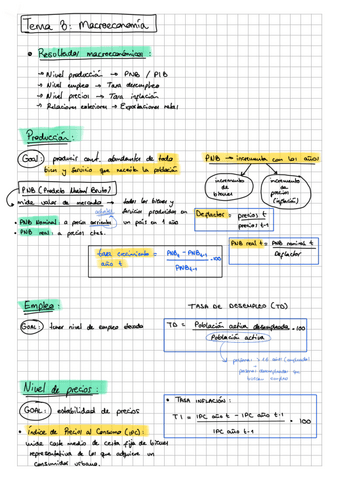 Tema 8: Macroeconomía
• Resultados macroeconómicos:
→ Nivel producción → PNB / PIB
→ Nivel empleo → Tasa desempleo
→ Nivel precios → Tasa inflación
→ Relaciones exteriores → Exportaciones netas
Producción:
Goal: producir cant. abundantes de todo
bien y servicio que necesita la población
PNB → incrementa con los años
incremento
de
bienes
incremento
de
precios
(inflación)
PNB (Producto Nacional Bruto)
mide valor de mercado → todos los bienes y
servicios producidos en
un país en 1 año
• PNB Nominal: a precio corrientes
• PNB real: a precios ctes.
Deflactor = precios t
precios t-1
PNB real t = PNB nominal t
Deflactor
tasa crecimiento
año t
= PNBt - PNBt-1
PNBt-1
· 100
Empleo:
GOAL: tener nivel de empleo elevado
TASA DE DESEMPLEO (TD)
TD = Población activa desempleada · 100
Población activa
Nivel de precios:
GOAL: estabilidad de precios
• Índice de Precios al Consumo (IPC):
mide coste medio de cesta fija de bienes
representativa de los que adquiere un
consumidor urbano.
• TASA INFLACIÓN:
TI = IPC año t - IPC año t-1
IPC año t-1
· 100